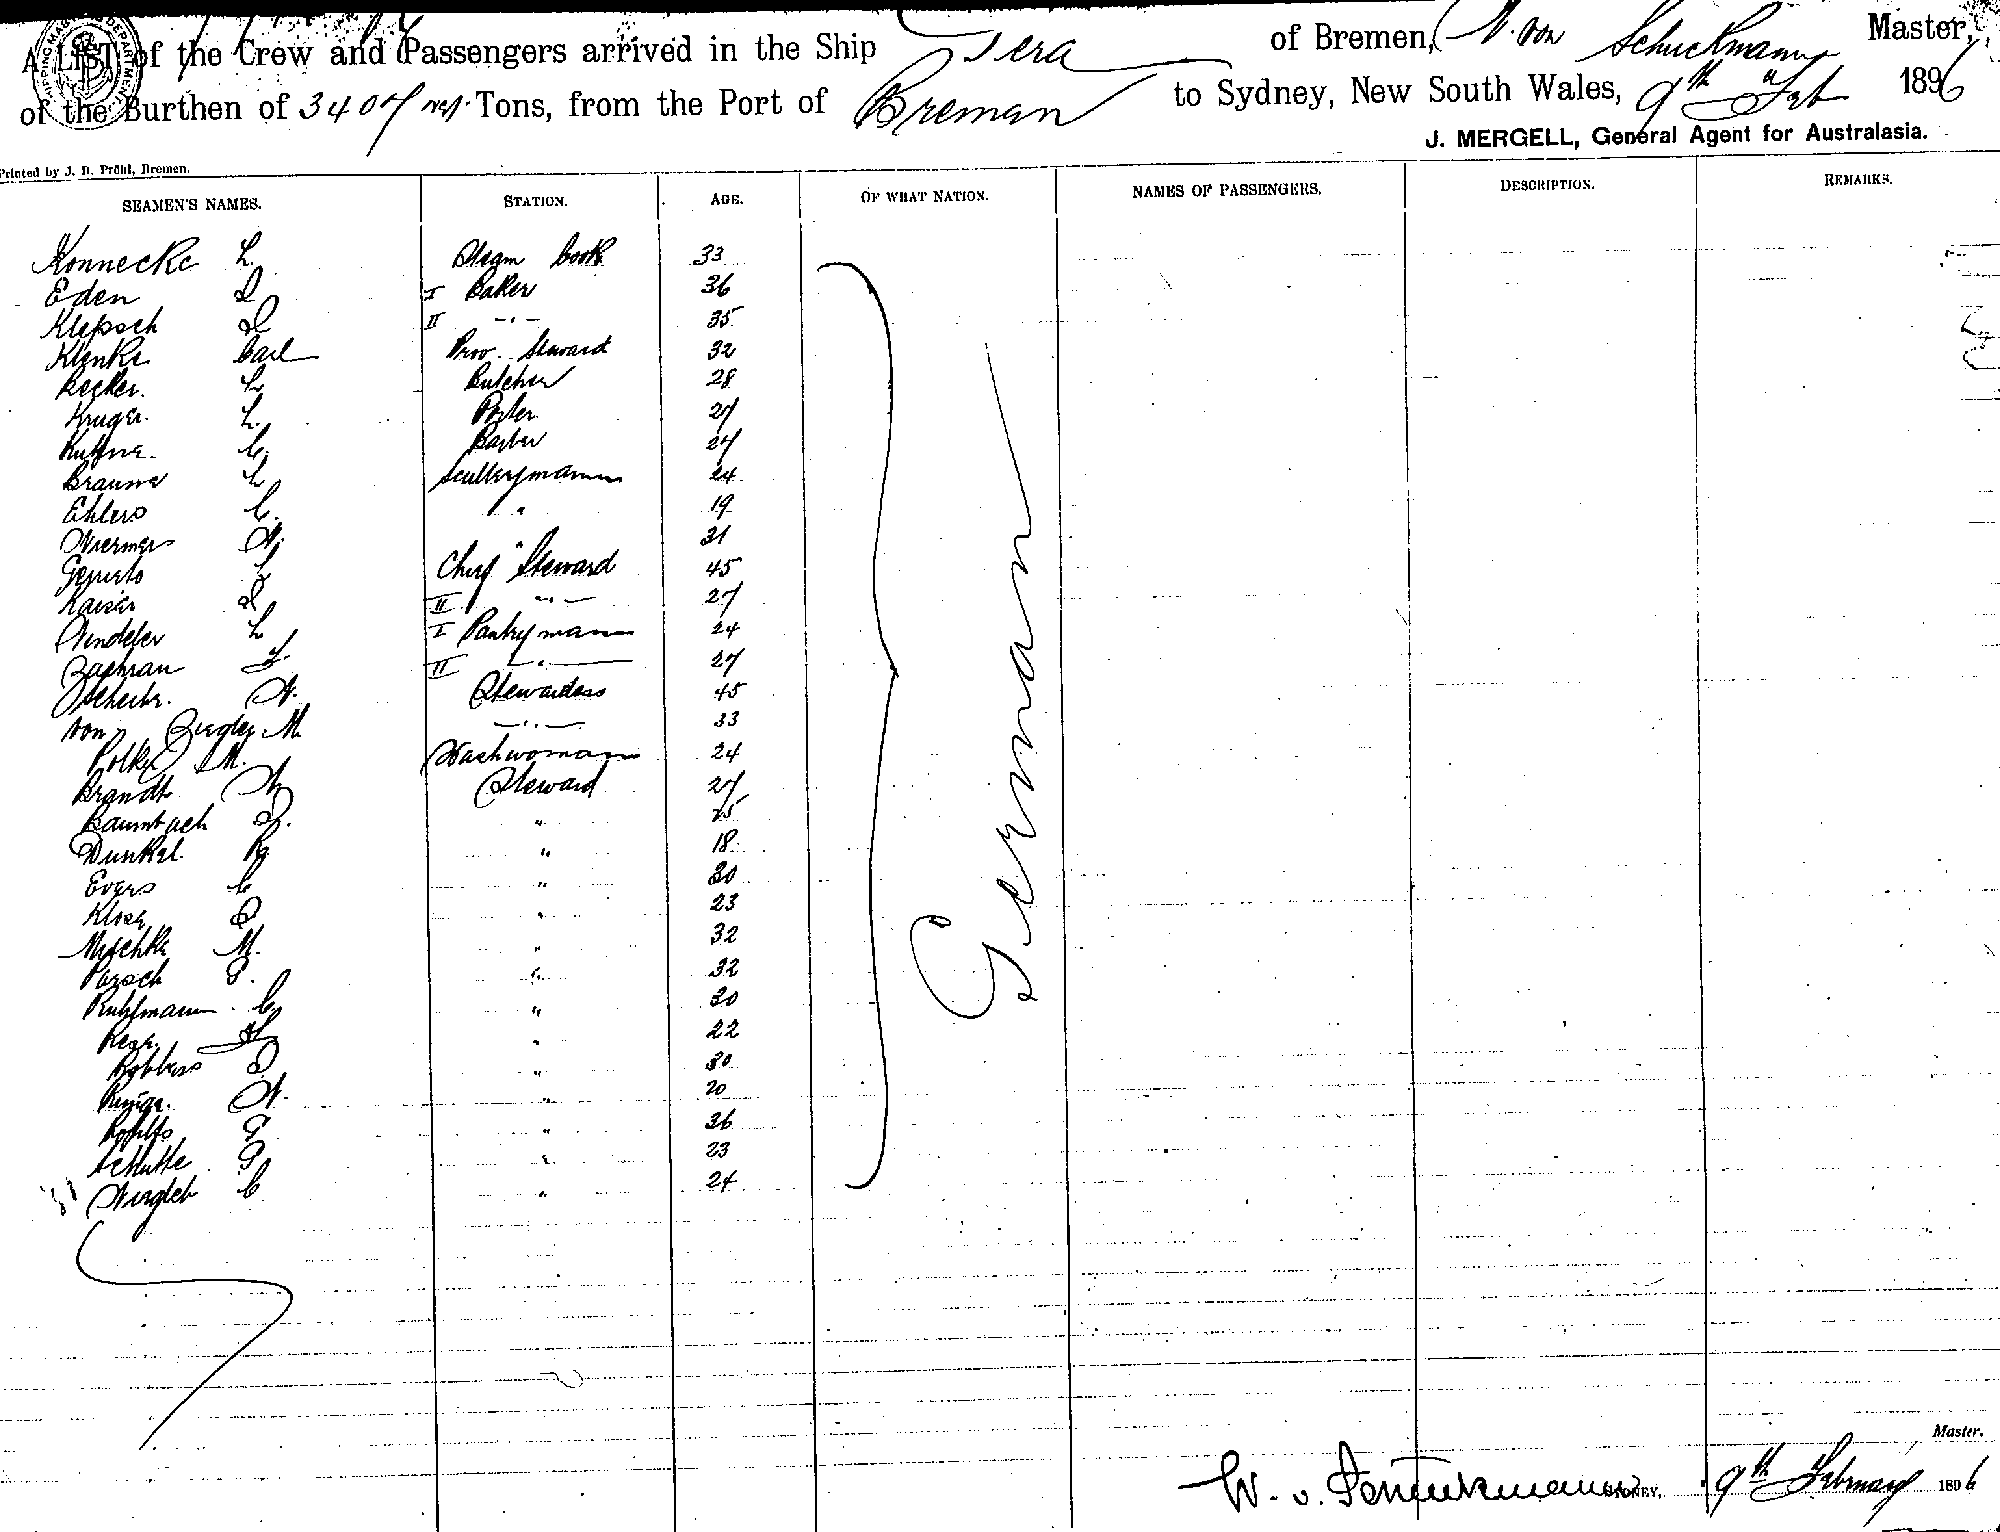 A LIST of the Crew and Passengers arrived in the Ship Gera of Bremen, W. von Schuckmann Master,
of the Burthen of 3407 net Tons, from the Port of Breman to Sydney, New South Wales, 9th Feb 1896
J. MERGELL, General Agent for Australasia.
Printed by J. D. Pröhl, Bremen.
SEAMEN'S NAMES. STATION. AGE. OF WHAT NATION. NAMES OF PASSENGERS. DESCRIPTION. REMARKS.
Konnecke H. Steam Cook 33
Eden D I Baker 36
Klepsch D II -"- 35
Klenke Carl Prov. Steward 32
Becker. H. Butcher 28
Kruger. H. Porter 27
Kuhne. C. Barber 27
Braune H Scullerymann 24
Ehlers C. " 19
Wiermers W. " 21
H Chief Steward 45
Kaiser D II -"- 27
Windeler H I Pantrymann 24
F. II -"- 27
W. Stewardess 45
von Ziegler M. -"- 33
Polke M. Washwoman 24
Brandt W Steward 27
Baumbach D. " 25
Dunkel. R. " 18
Evers C " 30
Klose O " 23
Mischke M. " 32
Porsch P. " 32
Ruhlmann C. " 30
H " 22
Robbers D " 30
W. " 20
Rohlfs G " 36
Schutte G " 23
C. " 24
German
Master.
W. v. Schuckmann SYDNEY, 9th February 1896